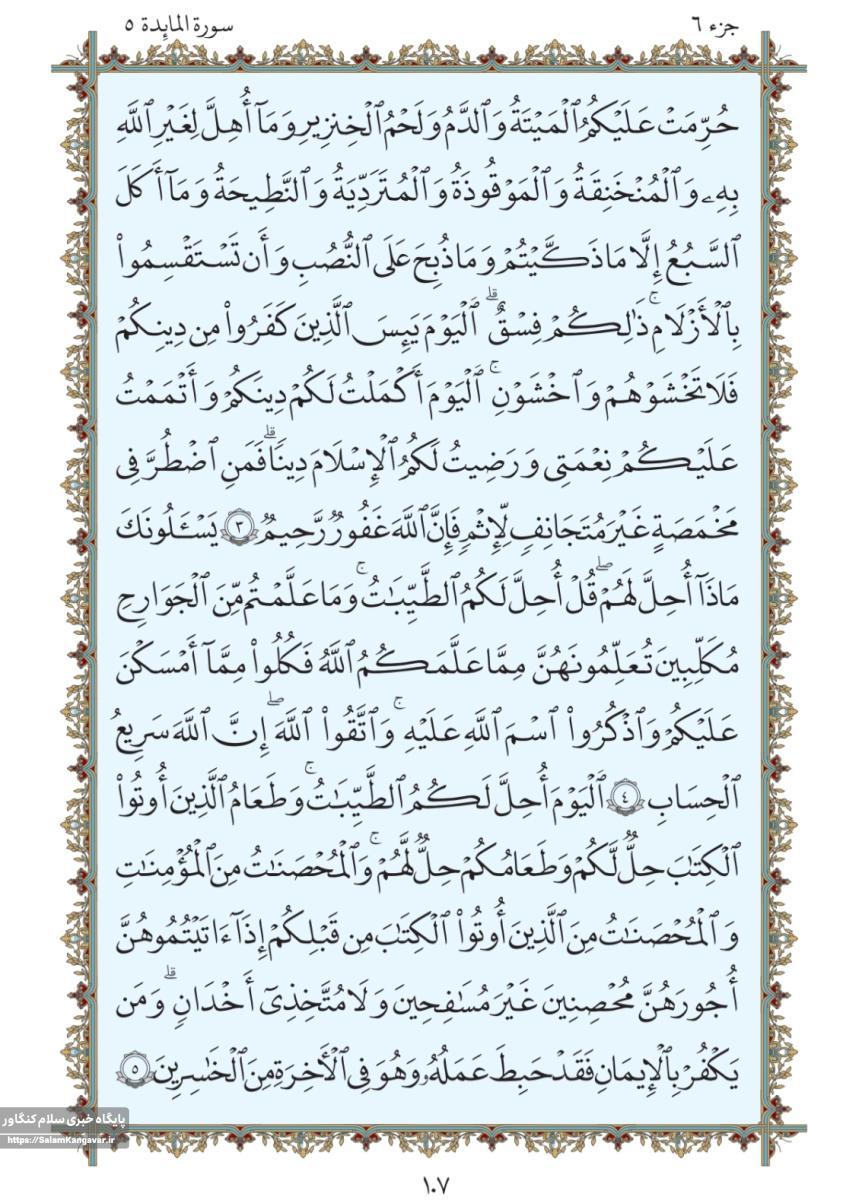 جزء ٦
سورة المائدة ٥
حُرِّمَتْ عَلَيْكُمُ ٱلْمَيْتَةُ وَٱلدَّمُ وَلَحْمُ ٱلْخِنزِيرِ وَمَآ أُهِلَّ لِغَيْرِ ٱللَّهِ
بِهِۦ وَٱلْمُنْخَنِقَةُ وَٱلْمَوْقُوذَةُ وَٱلْمُتَرَدِّيَةُ وَٱلنَّطِيحَةُ وَمَآ أَكَلَ
ٱلسَّبُعُ إِلَّا مَا ذَكَّيْتُمْ وَمَا ذُبِحَ عَلَى ٱلنُّصُبِ وَأَن تَسْتَقْسِمُوا۟
بِٱلْأَزْلَٰمِ ۚ ذَٰلِكُمْ فِسْقٌ ۗ ٱلْيَوْمَ يَئِسَ ٱلَّذِينَ كَفَرُوا۟ مِن دِينِكُمْ
فَلَا تَخْشَوْهُمْ وَٱخْشَوْنِ ۚ ٱلْيَوْمَ أَكْمَلْتُ لَكُمْ دِينَكُمْ وَأَتْمَمْتُ
عَلَيْكُمْ نِعْمَتِى وَرَضِيتُ لَكُمُ ٱلْإِسْلَٰمَ دِينًا ۗ فَمَنِ ٱضْطُرَّ فِى
مَخْمَصَةٍ غَيْرَ مُتَجَانِفٍ لِّإِثْمٍ فَإِنَّ ٱللَّهَ غَفُورٌ رَّحِيمٌ ٣ يَسْـَٔلُونَكَ
مَاذَآ أُحِلَّ لَهُمْ ۖ قُلْ أُحِلَّ لَكُمُ ٱلطَّيِّبَٰتُ ۚ وَمَا عَلَّمْتُم مِّنَ ٱلْجَوَارِحِ
مُكَلِّبِينَ تُعَلِّمُونَهُنَّ مِمَّا عَلَّمَكُمُ ٱللَّهُ فَكُلُوا۟ مِمَّآ أَمْسَكْنَ
عَلَيْكُمْ وَٱذْكُرُوا۟ ٱسْمَ ٱللَّهِ عَلَيْهِ ۚ وَٱتَّقُوا۟ ٱللَّهَ ۖ إِنَّ ٱللَّهَ سَرِيعُ
ٱلْحِسَابِ ٤ ٱلْيَوْمَ أُحِلَّ لَكُمُ ٱلطَّيِّبَٰتُ ۚ وَطَعَامُ ٱلَّذِينَ أُوتُوا۟
ٱلْكِتَٰبَ حِلٌّ لَّكُمْ وَطَعَامُكُمْ حِلٌّ لَّهُمْ ۚ وَٱلْمُحْصَنَٰتُ مِنَ ٱلْمُؤْمِنَٰتِ
وَٱلْمُحْصَنَٰتُ مِنَ ٱلَّذِينَ أُوتُوا۟ ٱلْكِتَٰبَ مِن قَبْلِكُمْ إِذَآ ءَاتَيْتُمُوهُنَّ
أُجُورَهُنَّ مُحْصِنِينَ غَيْرَ مُسَٰفِحِينَ وَلَا مُتَّخِذِىٓ أَخْدَانٍ ۗ وَمَن
يَكْفُرْ بِٱلْإِيمَٰنِ فَقَدْ حَبِطَ عَمَلُهُۥ وَهُوَ فِى ٱلْأَخِرَةِ مِنَ ٱلْخَٰسِرِينَ ٥
پایگاه خبری سلام کنگاور
https://SalamKangavar.ir
١٠٧